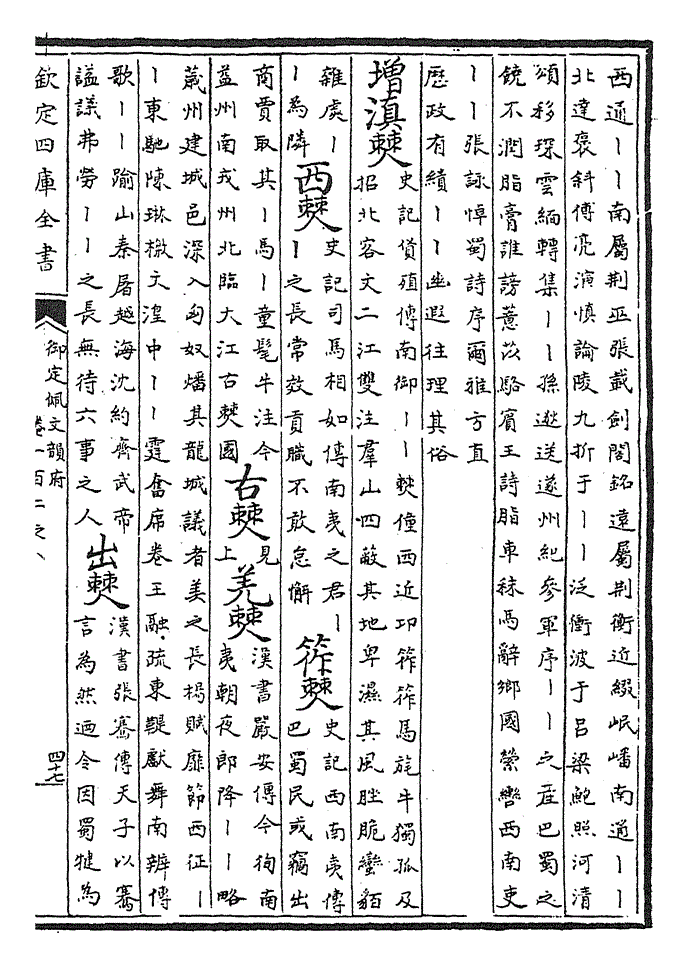 西通丨丨南屬荆巫張載劍閣銘遠屬荆衡近綴岷嶓南通丨丨
北達褒斜傅亮演慎論陵九折于丨丨泛衝波于呂梁鮑照河清
頌移琛雲緬轉集丨丨孫逖送遂州紀參軍序丨丨之産巴蜀之
饒不潤脂膏誰謗薏苡駱賓王詩脂車秣馬辭鄉國縈轡西南吏
丨丨張詠悼蜀詩序爾雅方直
歴政有績丨丨幽遐往理其俗
增滇僰
史記貨殖傳南御丨丨僰僮西近邛筰筰馬旄牛獨孤及
招北客文二江雙注羣山四蔽其地卑濕其風脞脆蠻貊
雜處丨
丨為隣
西僰
史記司馬相如傳南夷之君丨
丨之長常效貢職不敢怠懈
筰僰
史記西南夷傳
巴蜀民或竊出
商賈取其丨馬丨童髦牛注今
益州南戎州北臨大江古僰國
古僰
見
上
羌僰
漢書嚴安傳今徇南
夷朝夜郎降丨丨略
薉州建城邑深入匈奴燔其龍城議者美之長楊賦靡節西征丨
丨東馳陳琳檄文湟中丨丨霆奮席卷王融疏東鞮獻舞南辨傳
歌丨丨踰山秦屠越海沈約齊武帝
諡議弗勞丨丨之長無待六事之人
出僰
漢書張騫傳天子以騫
言為然迺令因蜀犍為
欽定四庫全書
御定佩文韻府
卷一百二之八
四十七